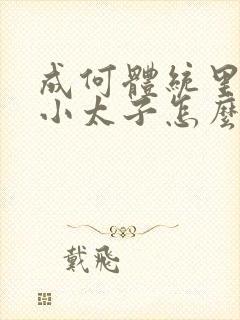 成何體統里
小太子怎麼
戴飛